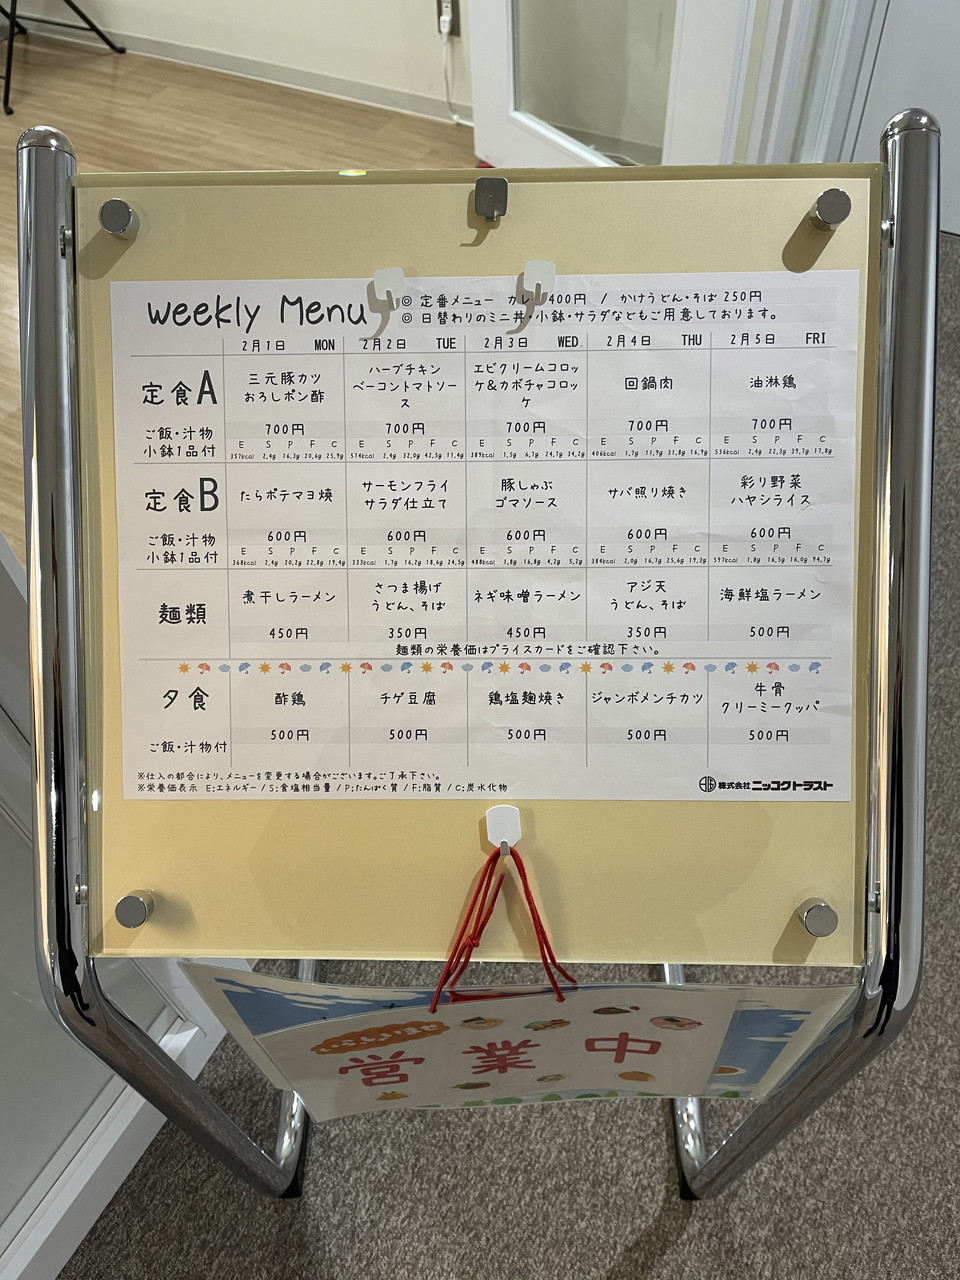 weekly Menu
◎ 定番メニュー カレー400円 / かけうどん・そば 250円
◎ 日替わりのミニ丼・小鉢・サラダなどもご用意しております。
2月1日 MON 2月2日 TUE 2月3日 WED 2月4日 THU 2月5日 FRI
定食A
三元豚カツ
おろしポン酢
ハーブチキン
ベーコントマトソー
ス
エビクリームコロッ
ケ&カボチャコロッ
ケ
回鍋肉
油淋鶏
ご飯・汁物
小鉢1品付
700円 700円 700円 700円 700円
E S P F C E S P F C E S P F C E S P F C E S P F C
357kcal 2.4g 16.3g 20.6g 25.9g 574kcal 2.4g 32.0g 42.5g 11.4g 389kcal 1.5g 6.7g 24.7g 34.2g 406kcal 1.7g 11.9g 31.8g 16.9g 536kcal 2.4g 22.3g 39.7g 17.8g
定食B
たらポテマヨ焼
サーモンフライ
サラダ仕立て
豚しゃぶ
ゴマソース
サバ照り焼き
彩り野菜
ハヤシライス
ご飯・汁物
小鉢1品付
600円 600円 600円 600円 600円
E S P F C E S P F C E S P F C E S P F C E S P F C
368kcal 2.4g 20.2g 22.8g 19.4g 333kcal 1.7g 16.2g 18.6g 24.5g 488kcal 1.8g 16.8g 4.2g 5.2g 384kcal 2.0g 16.7g 25.6g 19.3g 597kcal 1.8g 16.5g 16.0g 94.7g
麺類
煮干しラーメン
さつま揚げ
うどん、そば
ネギ味噌ラーメン
アジ天
うどん、そば
海鮮塩ラーメン
450円 350円 450円 350円 500円
麺類の栄養価はプライスカードをご確認下さい。
夕食
酢鶏
チゲ豆腐
鶏塩麹焼き
ジャンボメンチカツ
牛骨
クリーミークッパ
ご飯・汁物付
500円 500円 500円 500円 500円
※仕入の都合により、メニューを変更する場合がございます。ご了承下さい。
※栄養価表示 E:エネルギー / S:食塩相当量 / P:たんぱく質 / F:脂質 / C:炭水化物
株式会社ニッコクトラスト
営業中